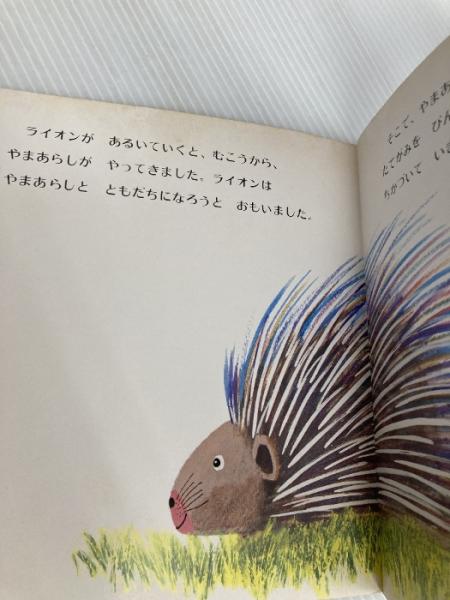 ライオンが あるいていくと、むこうから、
やまあらしが やってきました。ライオンは
やまあらしと ともだちになろうと おもいました。
そこで、やまあ
たてがみを ぴん
ちかづいて いき